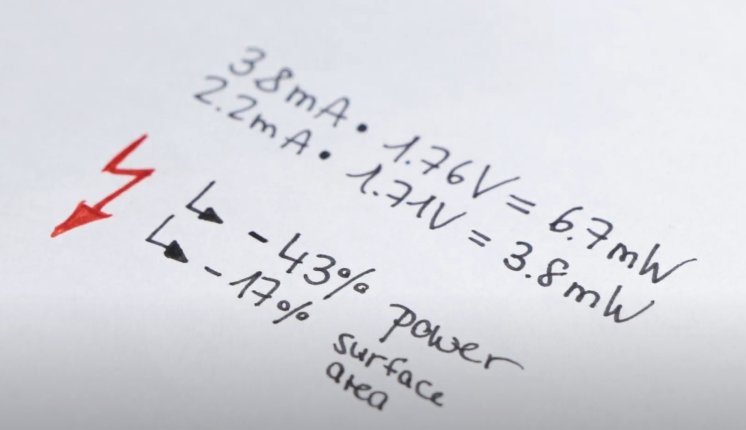 3.8mA • 1.76V = 6.7mW
2.2mA • 1.71V = 3.8mW
↳ -43% power
↳ -17% surface
area